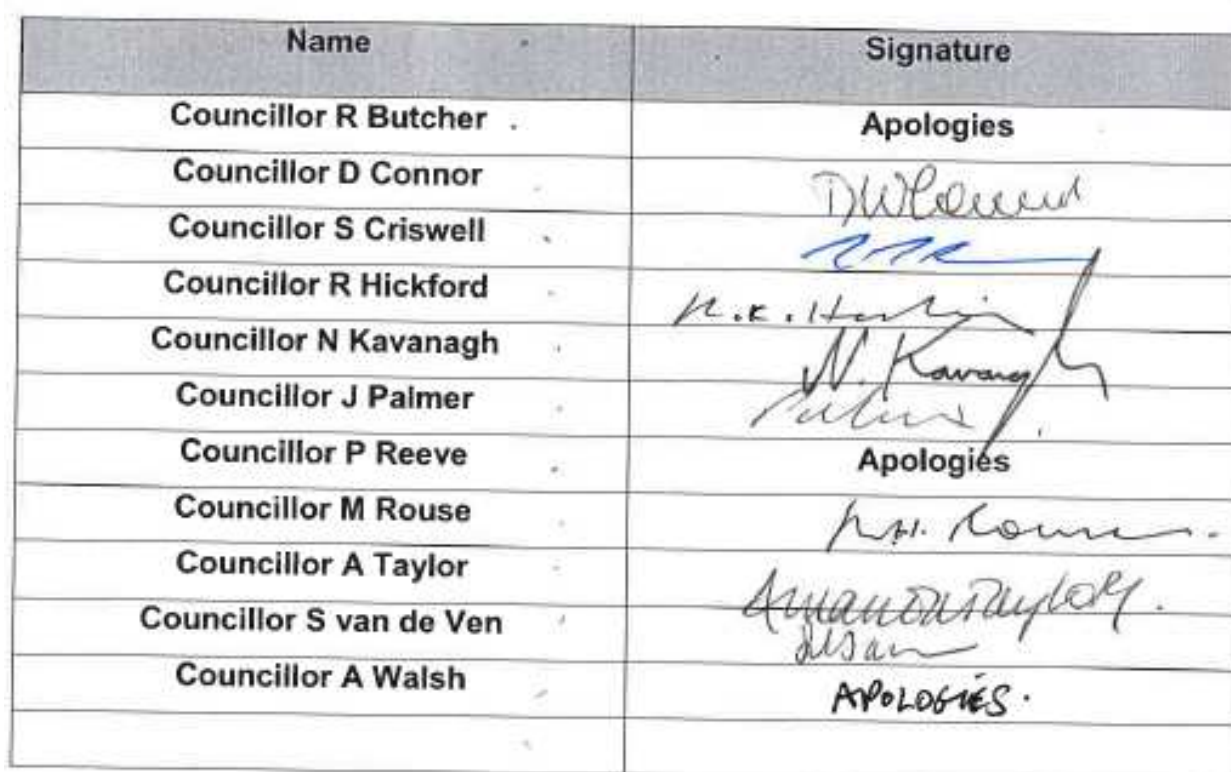 Name Signature
Councillor R Butcher Apologies
Councillor D Connor
Councillor S Criswell
Councillor R Hickford R.K.
Councillor N Kavanagh N. Kavanagh
Councillor J Palmer
Councillor P Reeve Apologies
Councillor M Rouse
Councillor A Taylor Amanda Taylor.
Councillor S van de Ven
Councillor A Walsh APOLOGIES.